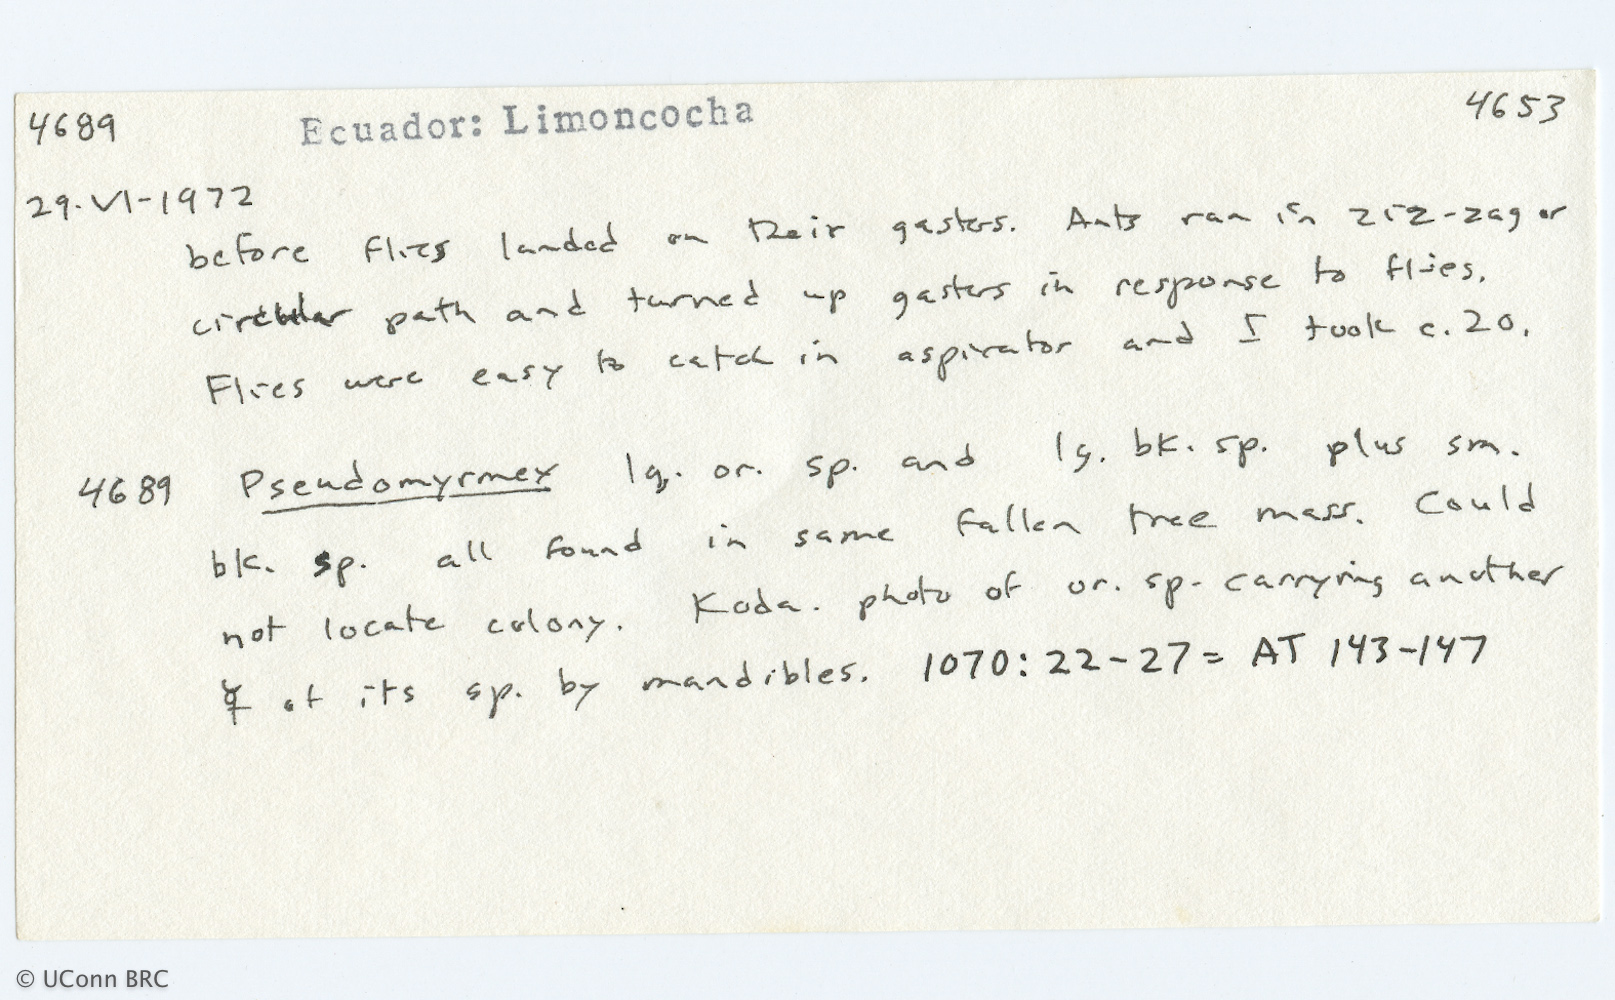 4689 Ecuador: Limoncocha 4653
29-VI-1972
before flies landed on their gasters. Ants ran in ziz-zag or
circular path and turned up gasters in response to flies.
Flies were easy to catch in aspirator and I took c. 20.
4689 Pseudomyrmex lg. or. sp. and lg. bk. sp. plus sm.
bk. sp. all found in same fallen tree mass. Could
not locate colony. Koda. photo of or. sp. carrying another
☿ of its sp. by mandibles. 1070: 22-27 = AT 143-147
© UConn BRC